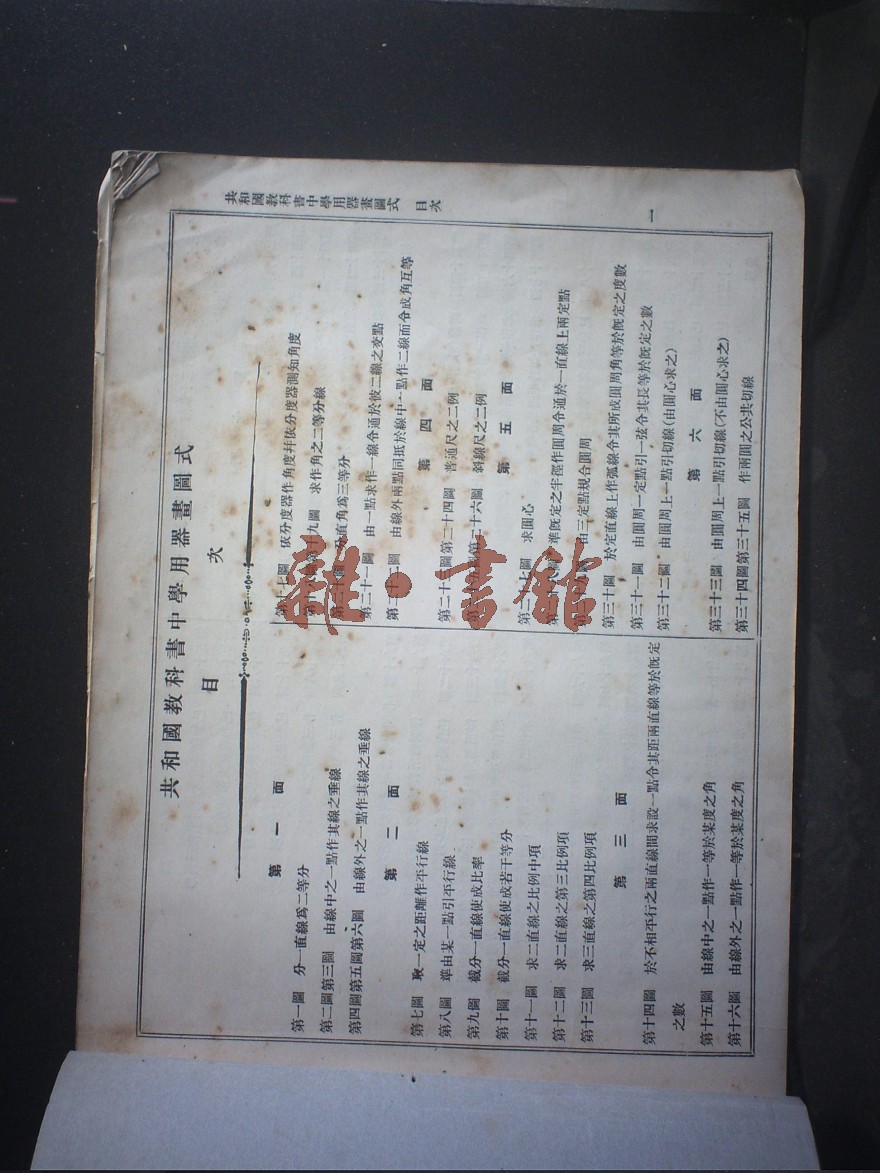 共和國教科書中學用器畫圖式
目次
第一面
第一圖 分一直線爲二等分
第二圖第三圖 由線中之一點作其線之垂線
第四圖第五圖第六圖 由線外之一點作其線之垂線
第二面
第七圖 取一定之距離作平行線
第八圖 準由某一點引平行線
第九圖 截分一直線使成比率
第十圖 截分一直線使成若干等分
第十一圖 求二直線之比例中項
第十二圖 求二直線之第三比例項
第十三圖 求三直線之第四比例項
第三面
第十四圖 於不相平行之兩直線間求設一點令其距兩直線等於旣定
之數
第十五圖 由線中之一點作一等於某度之角
第十六圖 由線外之一點作一等於某度之角
第十七圖 依分度器作角度幷依分度器測知角度
十九圖 求作角之二等分線
分直角爲三等分
第二十一圖 由一點求作一線令通於彼二線之交點
第二十二圖 由線外兩點同抵於線中一點作二線而令成角互等
第四面
第二十三圖第二十四圖 普通尺之二例
第二十六圖 斜線尺之二例
第五面
第二十七圖 求圓心
準旣定之半徑作圓周令通於一直線上兩定點
由三定點規合圓周
第三十圖 於定直線上作弧線令其所成圓周角等於旣定之度數
第三十一圖 由圓周一定點引一弦令其長等於旣定之數
第三十二圖 由圓周上一點引切線(由圓心求之)
第六面
第三十三圖 由圓周上一點引切線(不由圓心求之)
第三十四圖第三十五圖 作兩圓之公共切線
共和國教科書中學用器畫圖式 目次
一